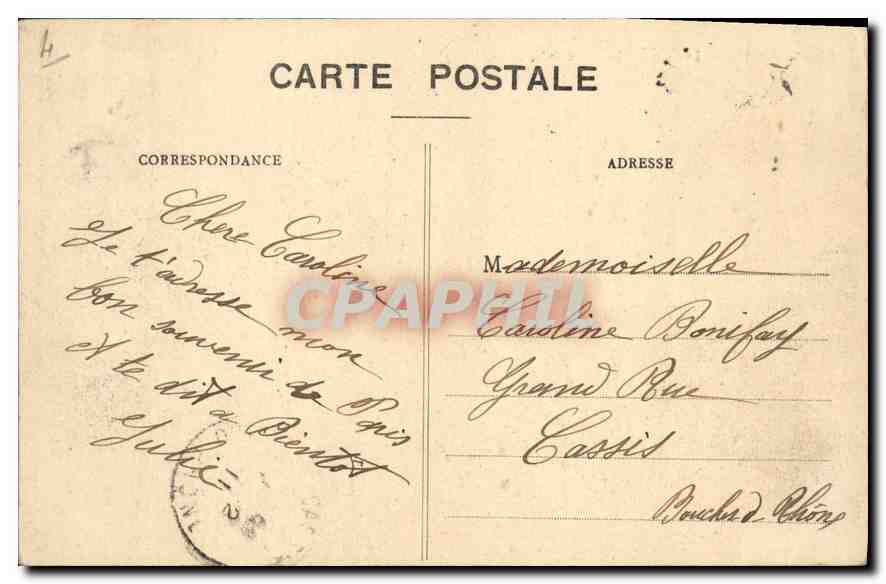 4
CARTE POSTALE
CORRESPONDANCE
ADRESSE
Chere Caroline
Je t'adresse mon
bon souvenir de Paris
et te dit a Bientôt
Julie
Mademoiselle
Caroline Bonifay
Grand Rue
Cassis
Bouches d. Rhône
CPAPHIL